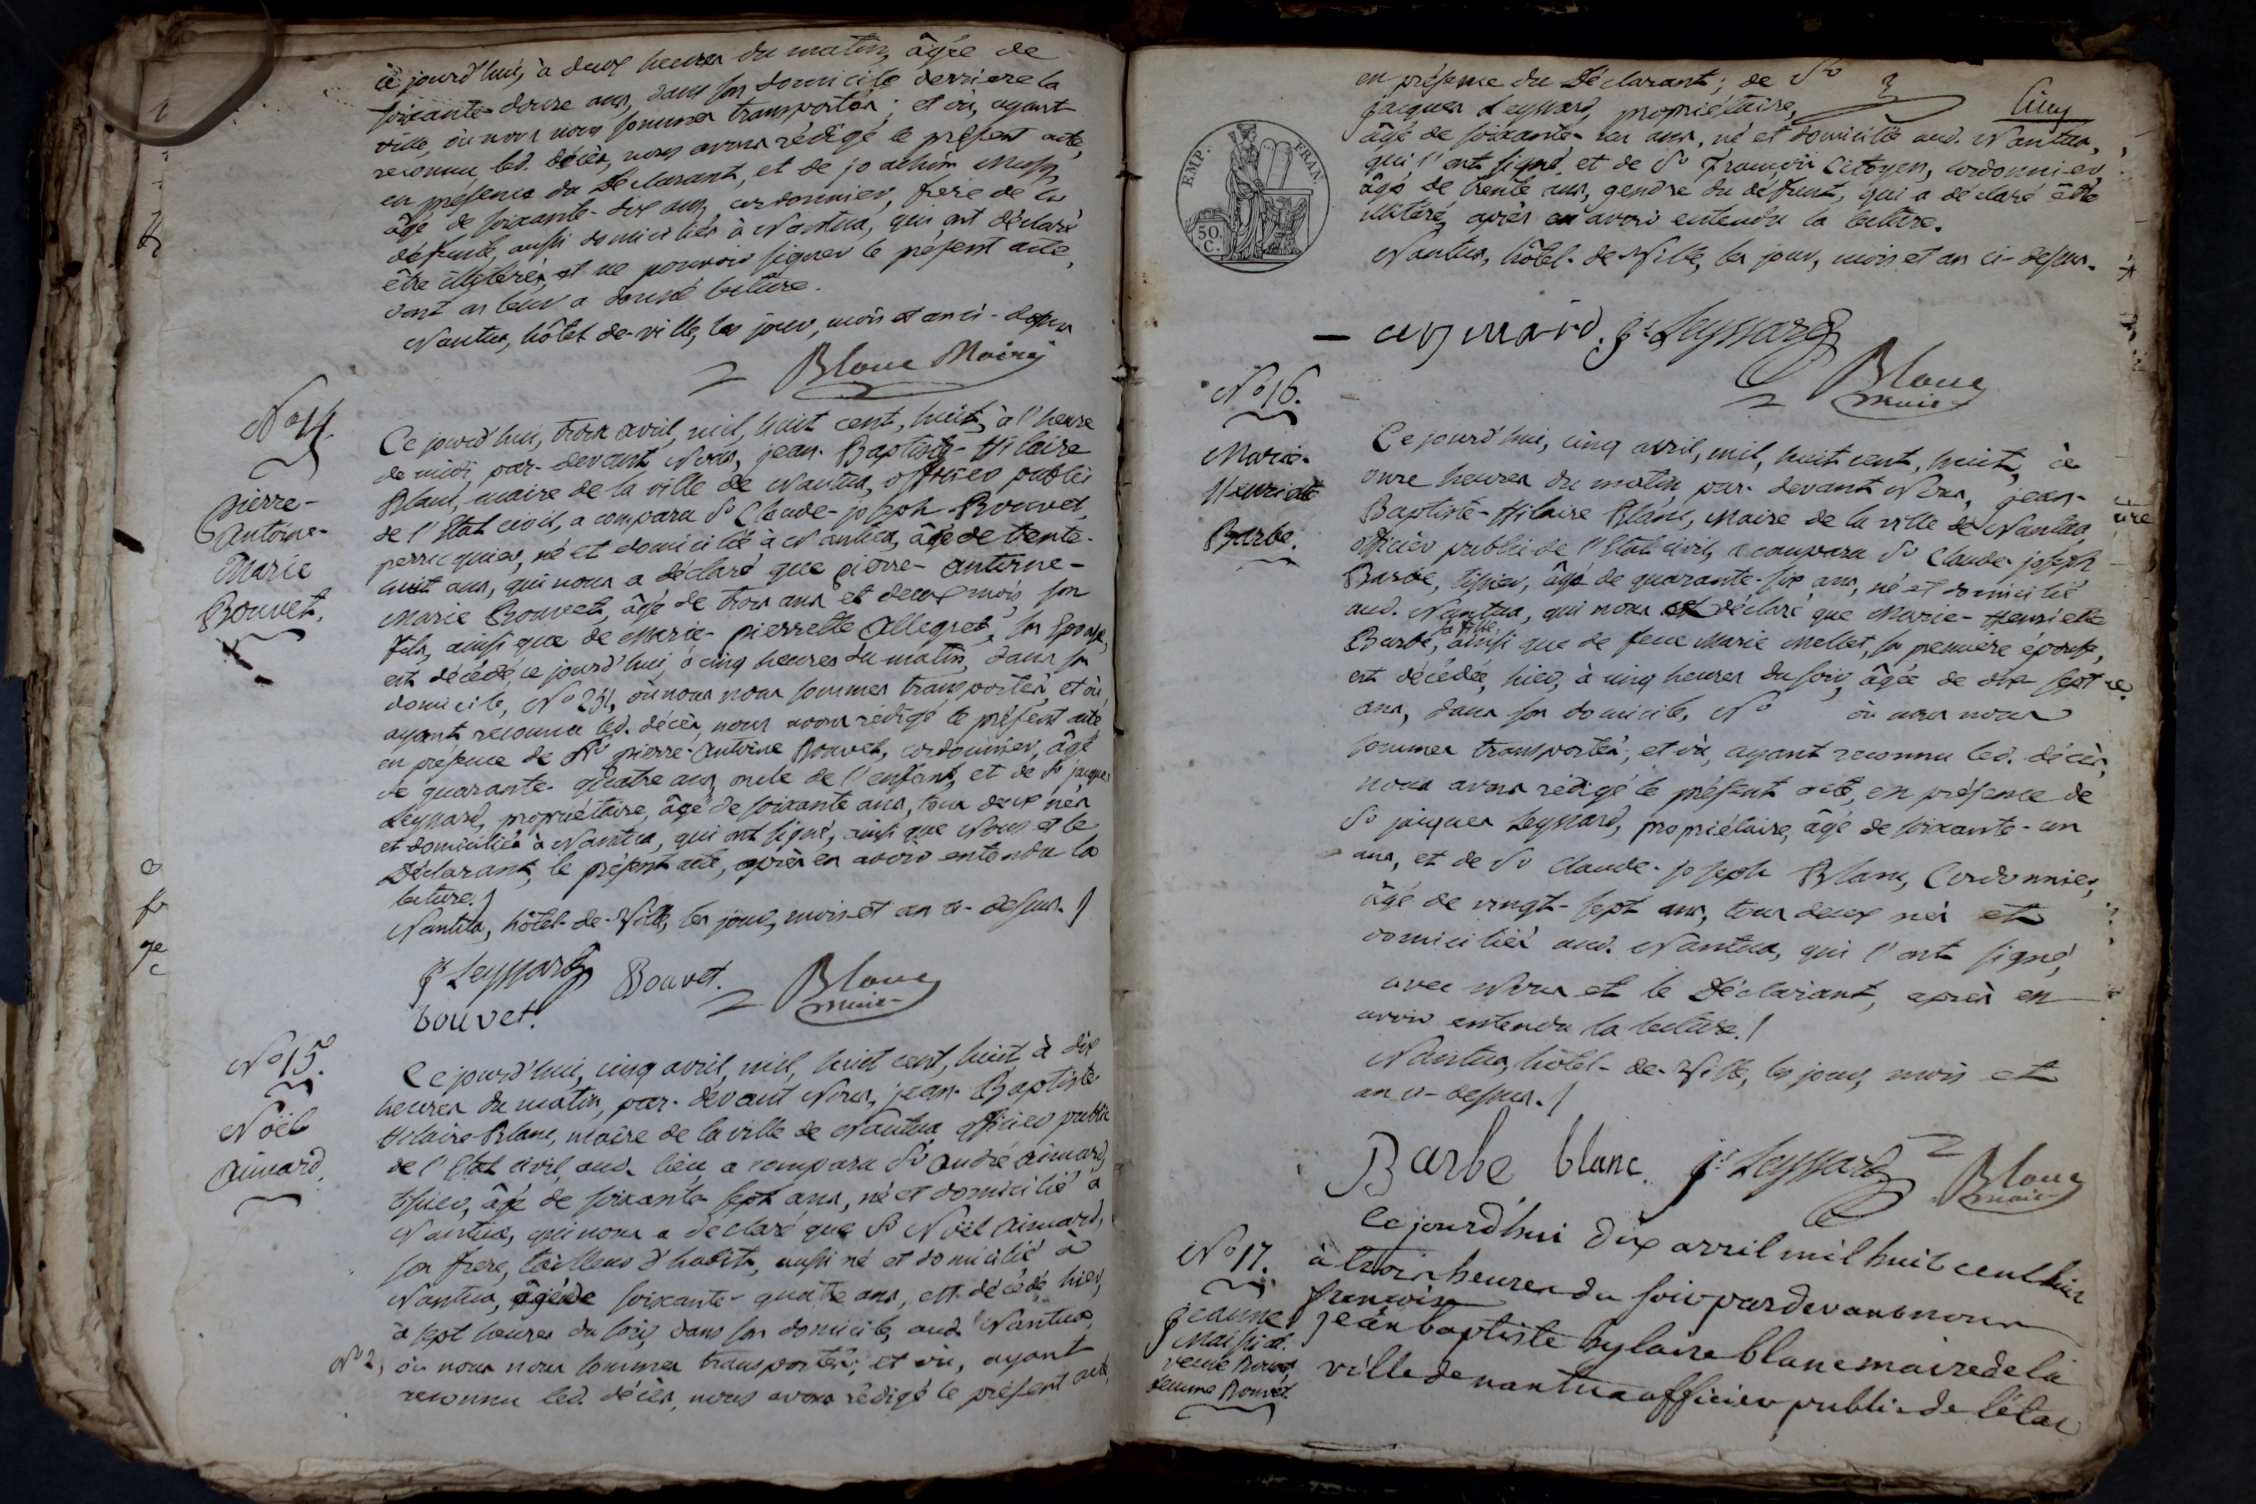 ce jourd'hui, à deux heures du matin, âgée de
soixante-douze ans, dans son domicile derriere la
ville, où nous nous sommes transportés; et où, ayant
reconnu led. décès, nous avons rédigé le présent acte,
en présence du Déclarant, et de joachim
âgé de soixante-dix ans, cordonnier, frère de la
défunte, aussi domiciliés à Nantua, qui ont déclaré
être illétérés, et ne pouvoir signer le présent acte,
dont on leur a donné lecture.
Nantua, hôtel-de-ville, les jour, mois et an ci-dessus
Blanc Maire
N° 14.
Pierre-
Antoine-
Marie
Bouvet.
Ce jourd'hui, trois avril, mil, huit cent, huit, à l'heure
de midi, par-devant Nous, jean-Baptiste-Hilaire
Blanc, maire de la ville de Nantua, officier public
de l'Etat civil, a comparu Sr Claude-joseph Bouvet,
perruquier, né et domicilié à Nantua, âgé de trente-
huit ans, qui nous a déclaré que pierre-antoine-
Marie Bouvet, âgé de trois ans et deux mois, son
fils, ainsi que de Marie-pierrette Allegret, son Epouse,
est décédé, ce jourd'hui, à cinq heures du matin, dans son
domicile, N° 251, où nous nous sommes transportés, et où,
ayant reconnu led. décès, nous avons rédigé le présent acte
en présence de Sr pierre-Antoine Bouvet, cordonnier, âgé
de quarante-quatre ans, oncle de l'enfant, et de Sr jacques
Leyssard, propriétaire, âgé de soixante ans, tous deux nés
et domiciliés à Nantua, qui ont signé, ainsi que Nous et le
Déclarant, le présent acte, après en avoir entendu la
lecture./
Nantua, hôtel-de-Ville, les jour, mois et an ci-dessus./
Js Leyssard Bouvet. Blanc
bouvet. maire
N° 15.
Noël
Aimard.
Ce jourd'hui, cinq avril, mil, huit cent, huit, à dix
heures du matin, par-devant Nous, jean-Baptiste-
Hilaire Blanc, maire de la ville de Nantua, officier public
de l'Etat civil, aud. lieu, a comparu Sr André Aimard,
tissier, âgé de soixante-sept ans, né et domicilié à
Nantua, qui nous a déclaré que Sr Noël Aimard,
son frere, tailleur d'habits, aussi né et domicilié à
Nantua, âgé de soixante-quatre ans, est décédé, hier,
à sept heures du soir, dans son domicile, aud. Nantua,
N° 2, où nous nous sommes transportés; et où, ayant
reconnu led. décès, nous avons rédigé le présent acte,
en présence du Déclarant; de Sr
jacques Leyssard, propriétaire,
âgé de soixante-un ans, né et domicilié aud. Nantua,
qui l'ont signé, et de Sr François Citoyen, cordonnier,
âgé de trente ans, gendre du défunt, qui a déclaré être
illitéré, après en avoir entendu la lecture.
Nantua, hôtel-de-Ville, les jour, mois et an ci-dessus.
EMP. FRAN.
50.
C.
aymard. Js Leyssard
Blanc
maire
N° 16.
Marie-
Henriette
Barbe.
Ce jourd'hui, cinq avril, mil, huit cent, huit, à
onze heures du matin, par-devant Nous, jean-
Baptiste-Hilaire Blanc, Maire de la ville de Nantua,
officier public de l'Etat civil, a comparu Sr Claude-joseph
Barbe, tissier, âgé de quarante-six ans, né et domicilié
aud. Nantua, qui nous a déclaré que Marie-Henriette
Barbe, sa fille, ainsi que de feue Marie Mellet, sa première épouse,
est décédée, hier, à cinq heures du soir, âgée de dix sept
ans, dans son domicile, N° où nous nous
sommes transportés; et où, ayant reconnu led. décès,
nous avons rédigé le présent acte, en présence de
Sr jacques Leyssard, propriétaire, âgé de soixante-un
ans, et de Sr Claude-joseph Blanc, Cordonnier,
âgé de vingt-sept ans, tous deux nés et
domiciliés aud. Nantua, qui l'ont signé,
avec Nous et le Déclarant, après en
avoir entendu la lecture./
Nantua, hôtel-de-Ville, les jour, mois et
an ci-dessus./
Barbe blanc. Js Leyssard Blanc
maire
N° 17.
jeanne
veuve Bouvet
femme Bouvet
Ce jourd'hui dix avril mil huit cent huit
à trois heures du soir pardevant nous
françois
jean baptiste hylaire blanc maire de la
ville de nantua officier public de l'état